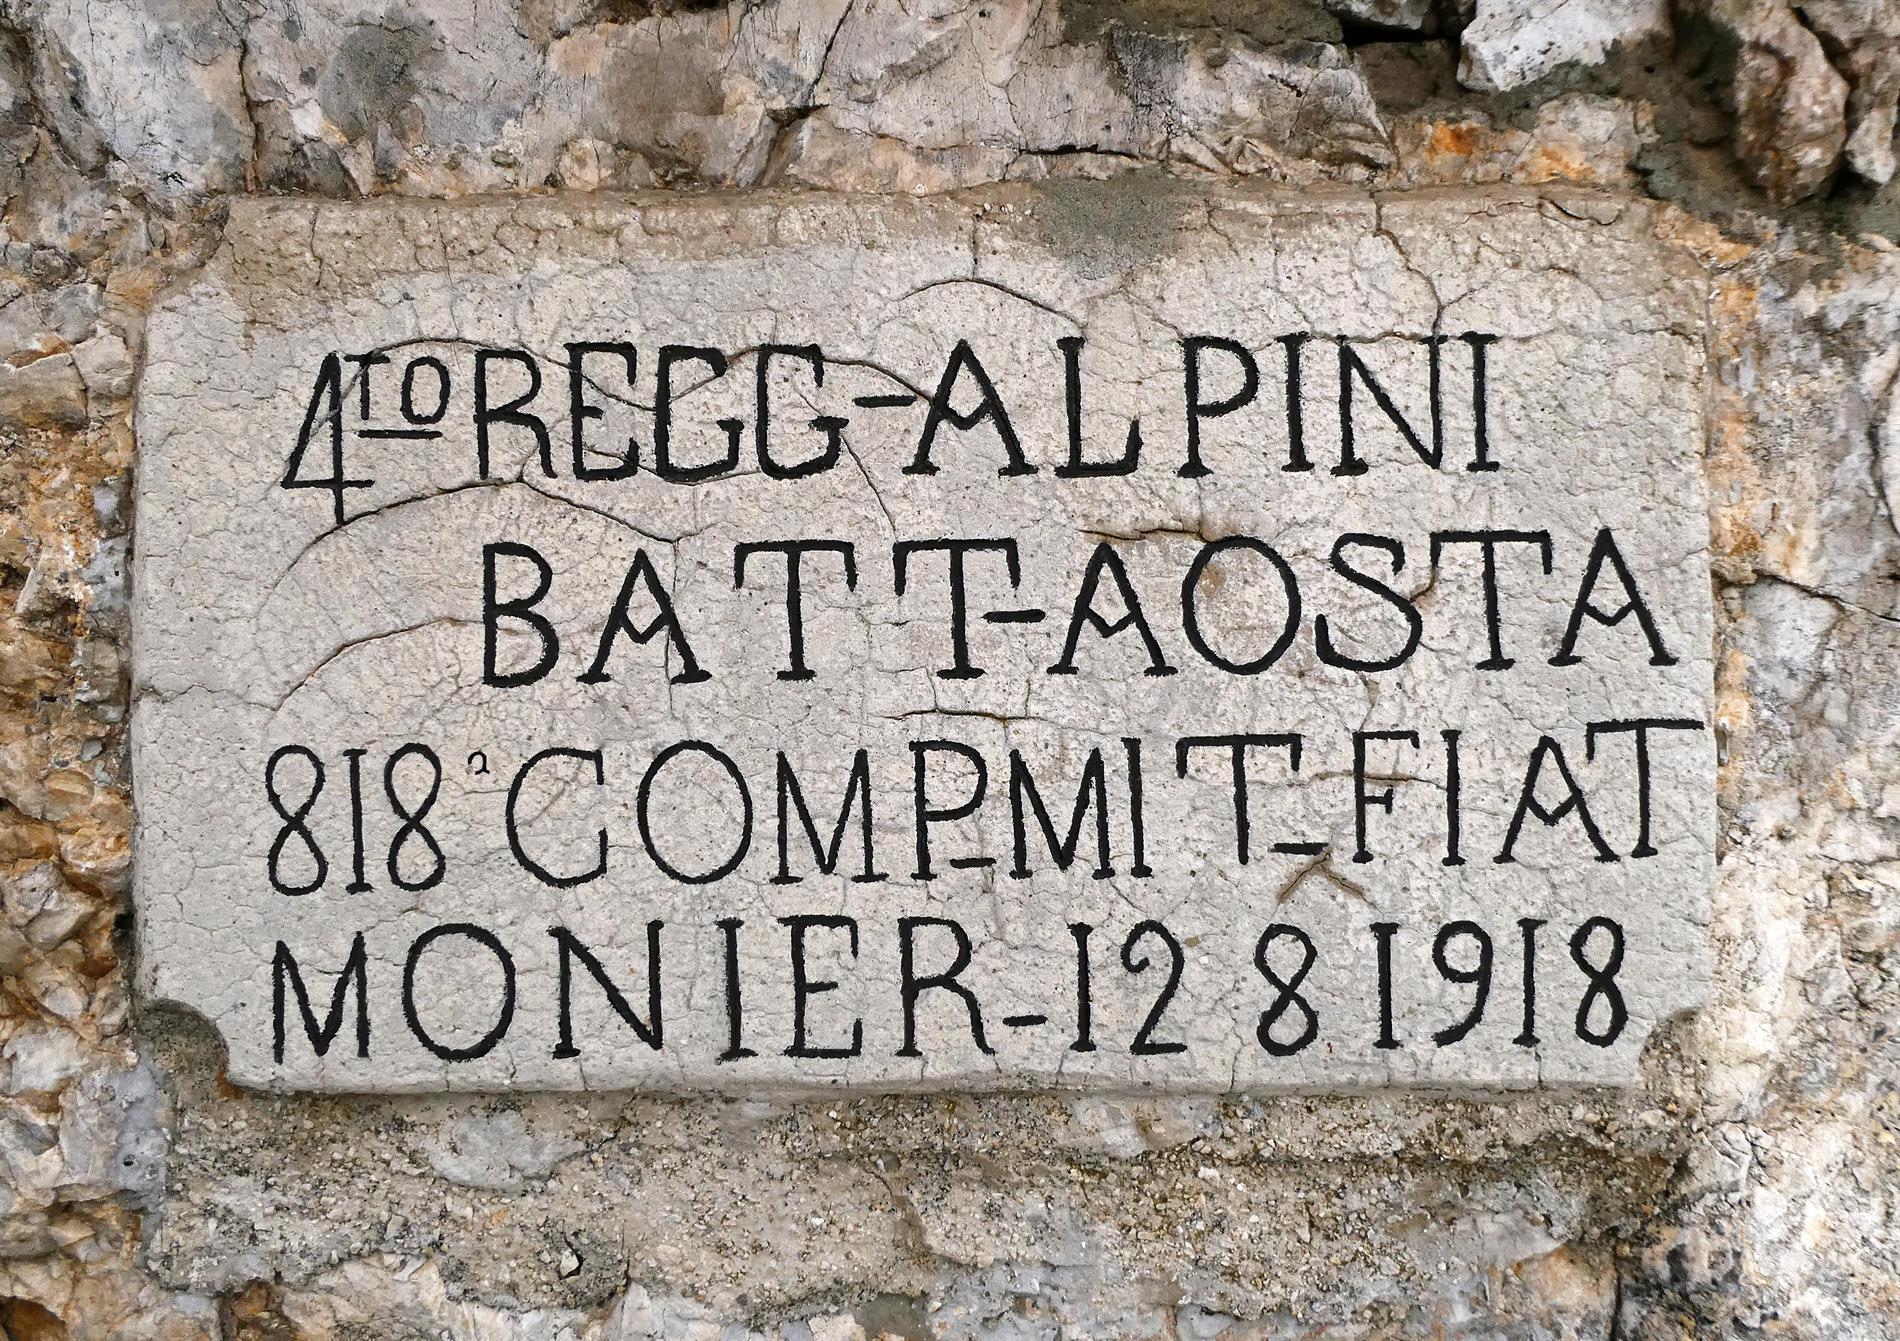 4TO REGG-ALPINI
BATT-AOSTA
818a COMP-MIT-FIAT
MONIER-12 8 1918